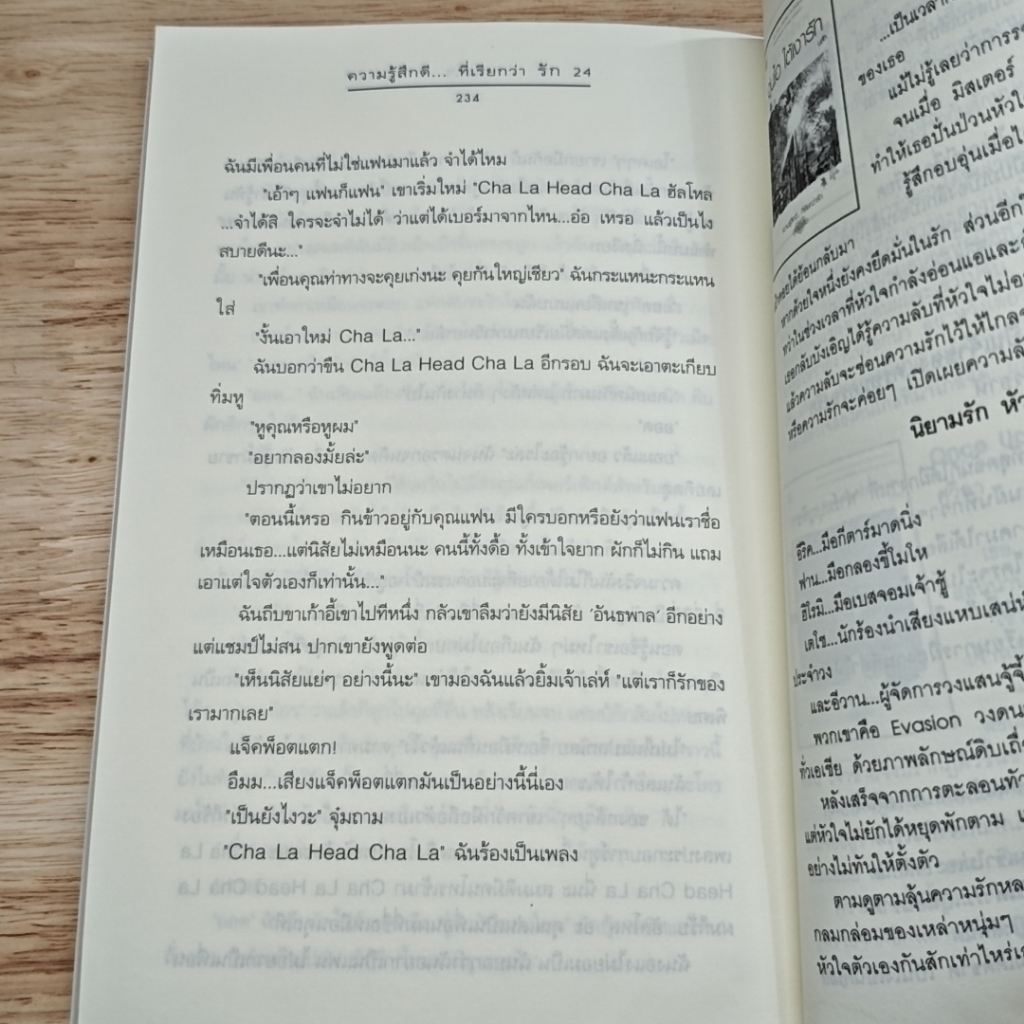 ความรู้สึกดี... ที่เรียกว่า รัก 24
234
ฉันมีเพื่อนคนที่ไม่ใช่แฟนมาแล้ว จำได้ไหม
"เอ้าๆ แฟนก็แฟน" เขาเริ่มใหม่ "Cha La Head Cha La ฮัลโหล
...จำได้สิ ใครจะจำไม่ได้ ว่าแต่ได้เบอร์มาจากไหน...อ๋อ เหรอ แล้วเป็นไง
สบายดีนะ..."
"เพื่อนคุณท่าทางจะคุยเก่งนะ คุยกันใหญ่เชียว" ฉันกระแหนะกระแหน
ใส่
"งั้นเอาใหม่ Cha La..."
ฉันบอกว่าขืน Cha La Head Cha La อีกรอบ ฉันจะเอาตะเกียบ
ทิ่มหู
"หูคุณหรือหูผม"
"อยากลองมั้ยล่ะ"
ปรากฏว่าเขาไม่อยาก
"ตอนนี้เหรอ กินข้าวอยู่กับคุณแฟน มีใครบอกหรือยังว่าแฟนเราชื่อ
เหมือนเธอ...แต่นิสัยไม่เหมือนนะ คนนี้ทั้งดื้อ ทั้งเข้าใจยาก ผักก็ไม่กิน แถม
เอาแต่ใจตัวเองก็เท่านั้น..."
ฉันถีบขาเก้าอี้เขาไปทีหนึ่ง กลัวเขาลืมว่ายังมีนิสัย 'อันธพาล' อีกอย่าง
แต่แชมป์ไม่สน ปากเขายังพูดต่อ
"เห็นนิสัยแย่ๆ อย่างนี้นะ" เขามองฉันแล้วยิ้มเจ้าเล่ห์ "แต่เราก็รักของ
เรามากเลย"
แจ็คพ็อตแตก!
อืมม...เสียงแจ็คพ็อตแตกมันเป็นอย่างนี้นี่เอง
"เป็นยังไงวะ" จุ๋มถาม
"Cha La Head Cha La" ฉันร้องเป็นเพลง
...เป็นเวลา
ของเธอ
แม้ไม่รู้เลยว่าการ
จนเมื่อ มิสเตอร์
ทำให้เธอปั่นป่วนหัวใ
รู้สึกอบอุ่นเมื่อไ
ได้ย้อนกลับมา
หากด้วยใจหนึ่งยังคงยึดมั่นในรัก ส่วนอีกใ
ทว่าในช่วงเวลาที่หัวใจกำลังอ่อนแอและ
เธอกลับบังเอิญได้รู้ความลับที่หัวใจไม่อ
แล้วความลับจะซ่อนความรักไว้ให้ไกล
หรือความรักจะค่อยๆ เปิดเผยความลั
นิยามรัก หัว
อริค...มือกีตาร์มาดนิ่ง
ฟาน...มือกลองขี้โมโห
ฮิโรมิ...มือเบสจอมเจ้าชู้
เคโซ...นักร้องนำเสียงแหบเสน่ห์
ประจำวง
และอีวาน...ผู้จัดการวงแสนจู้จี้
พวกเขาคือ Evasion วงดน
ทั่วเอเชีย ด้วยภาพลักษณ์ดิบเถื่
หลังเสร็จจากการตะลอนทัว
แต่หัวใจไม่ยักได้หยุดพักตาม
อย่างไม่ทันให้ตั้งตัว
ตามดูตามลุ้นความรักหล
กลมกล่อมของเหล่าหนุ่มๆ
หัวใจตัวเองกันสักเท่าไหร่